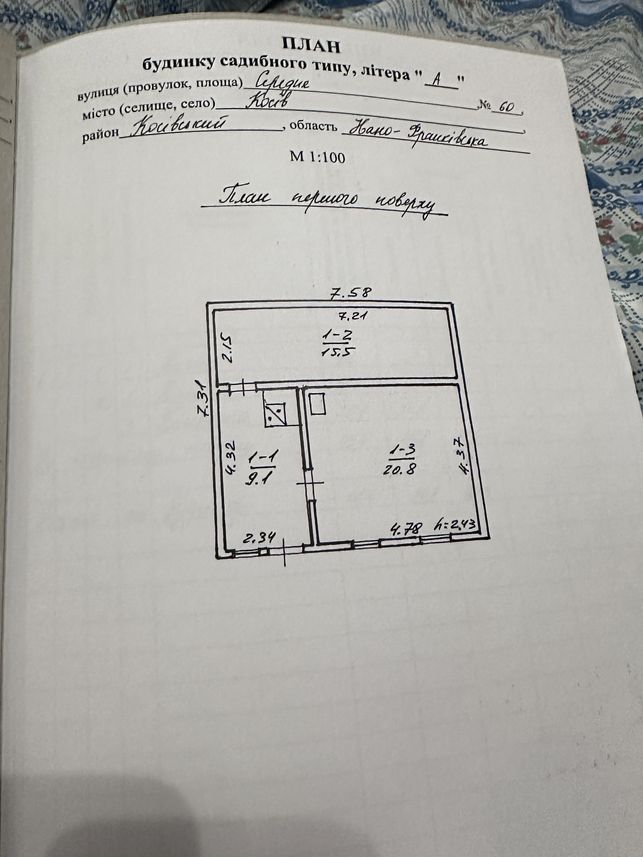 ПЛАН
будинку садибного типу, літера " А "
вулиця (провулок, площа) Середнє
місто (селище, село) Косів , № 60 ,
район Косівський , область Івано-Франківська
М 1:100
План першого поверху
7.58
7.21
1-2
15.5
2.15
7.31
4.32
1-1
9.1
1-3
20.8
4.37
2.34
4.78 h=2.43